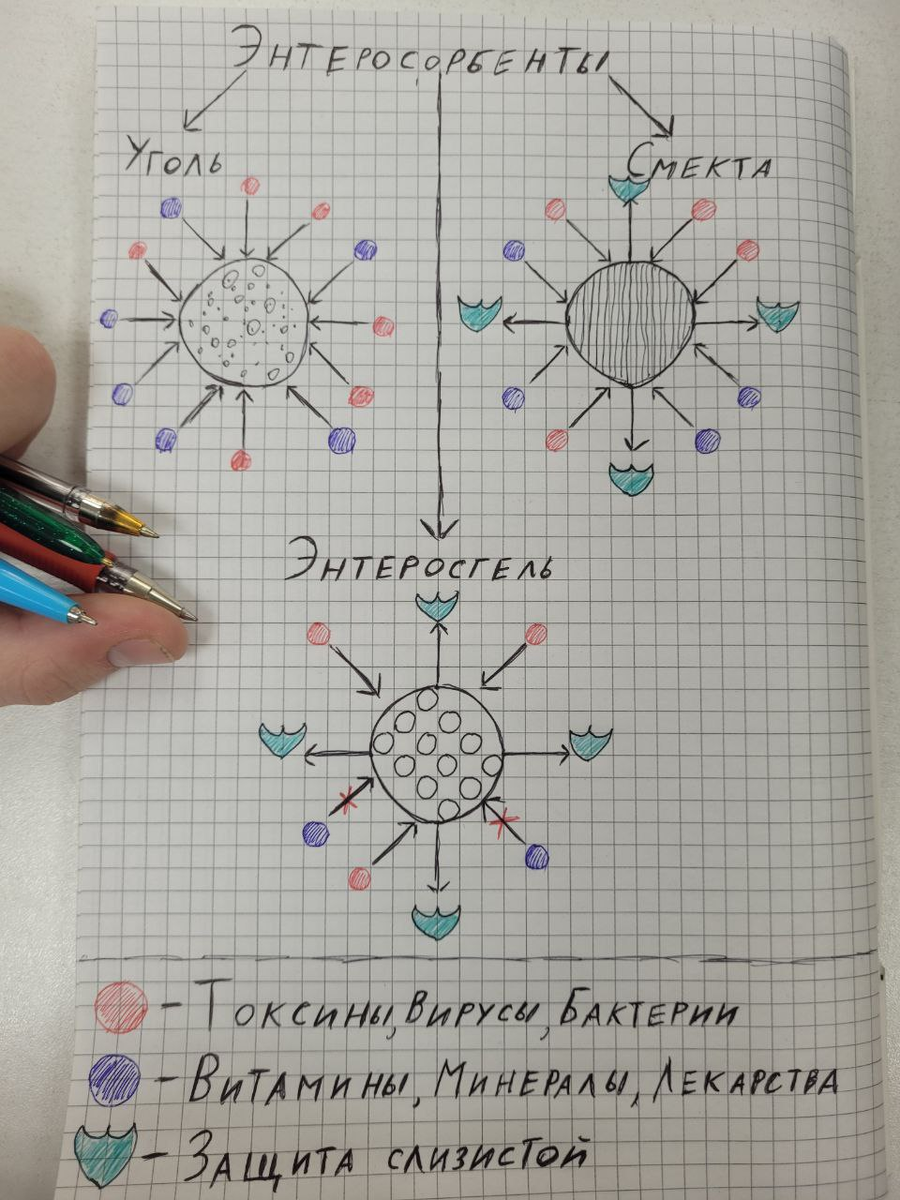 Энтеросорбенты
Уголь
Смекта
Энтеросгель
- Токсины, Вирусы, Бактерии
- Витамины, Минералы, Лекарства
- Защита слизистой